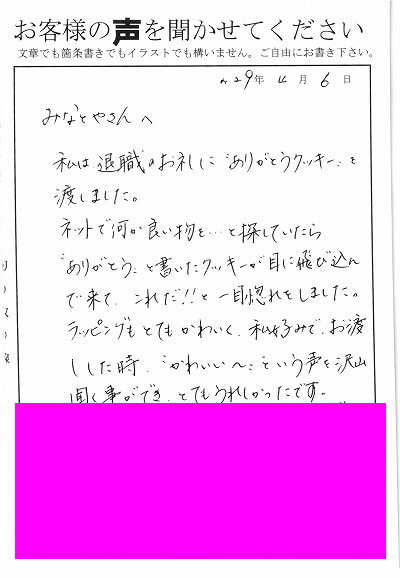 お客様の声を聞かせてください
文章でも箇条書きでもイラストでも構いません。ご自由にお書き下さい。
H29年 4月 6日
みなとやさんへ
私は退職のお礼に〝ありがとうクッキー〟を
渡しました。
ネットで何か良い物を…と探していたら
〝ありがとう〟と書いたクッキーが目に飛び込ん
で来て、これだ!!と一目惚れをしました。
ラッピングもとてもかわいく、私好みで、お渡
しした時、〝かわいい~〟という声を沢山
聞く事ができ、とてもうれしかったです。